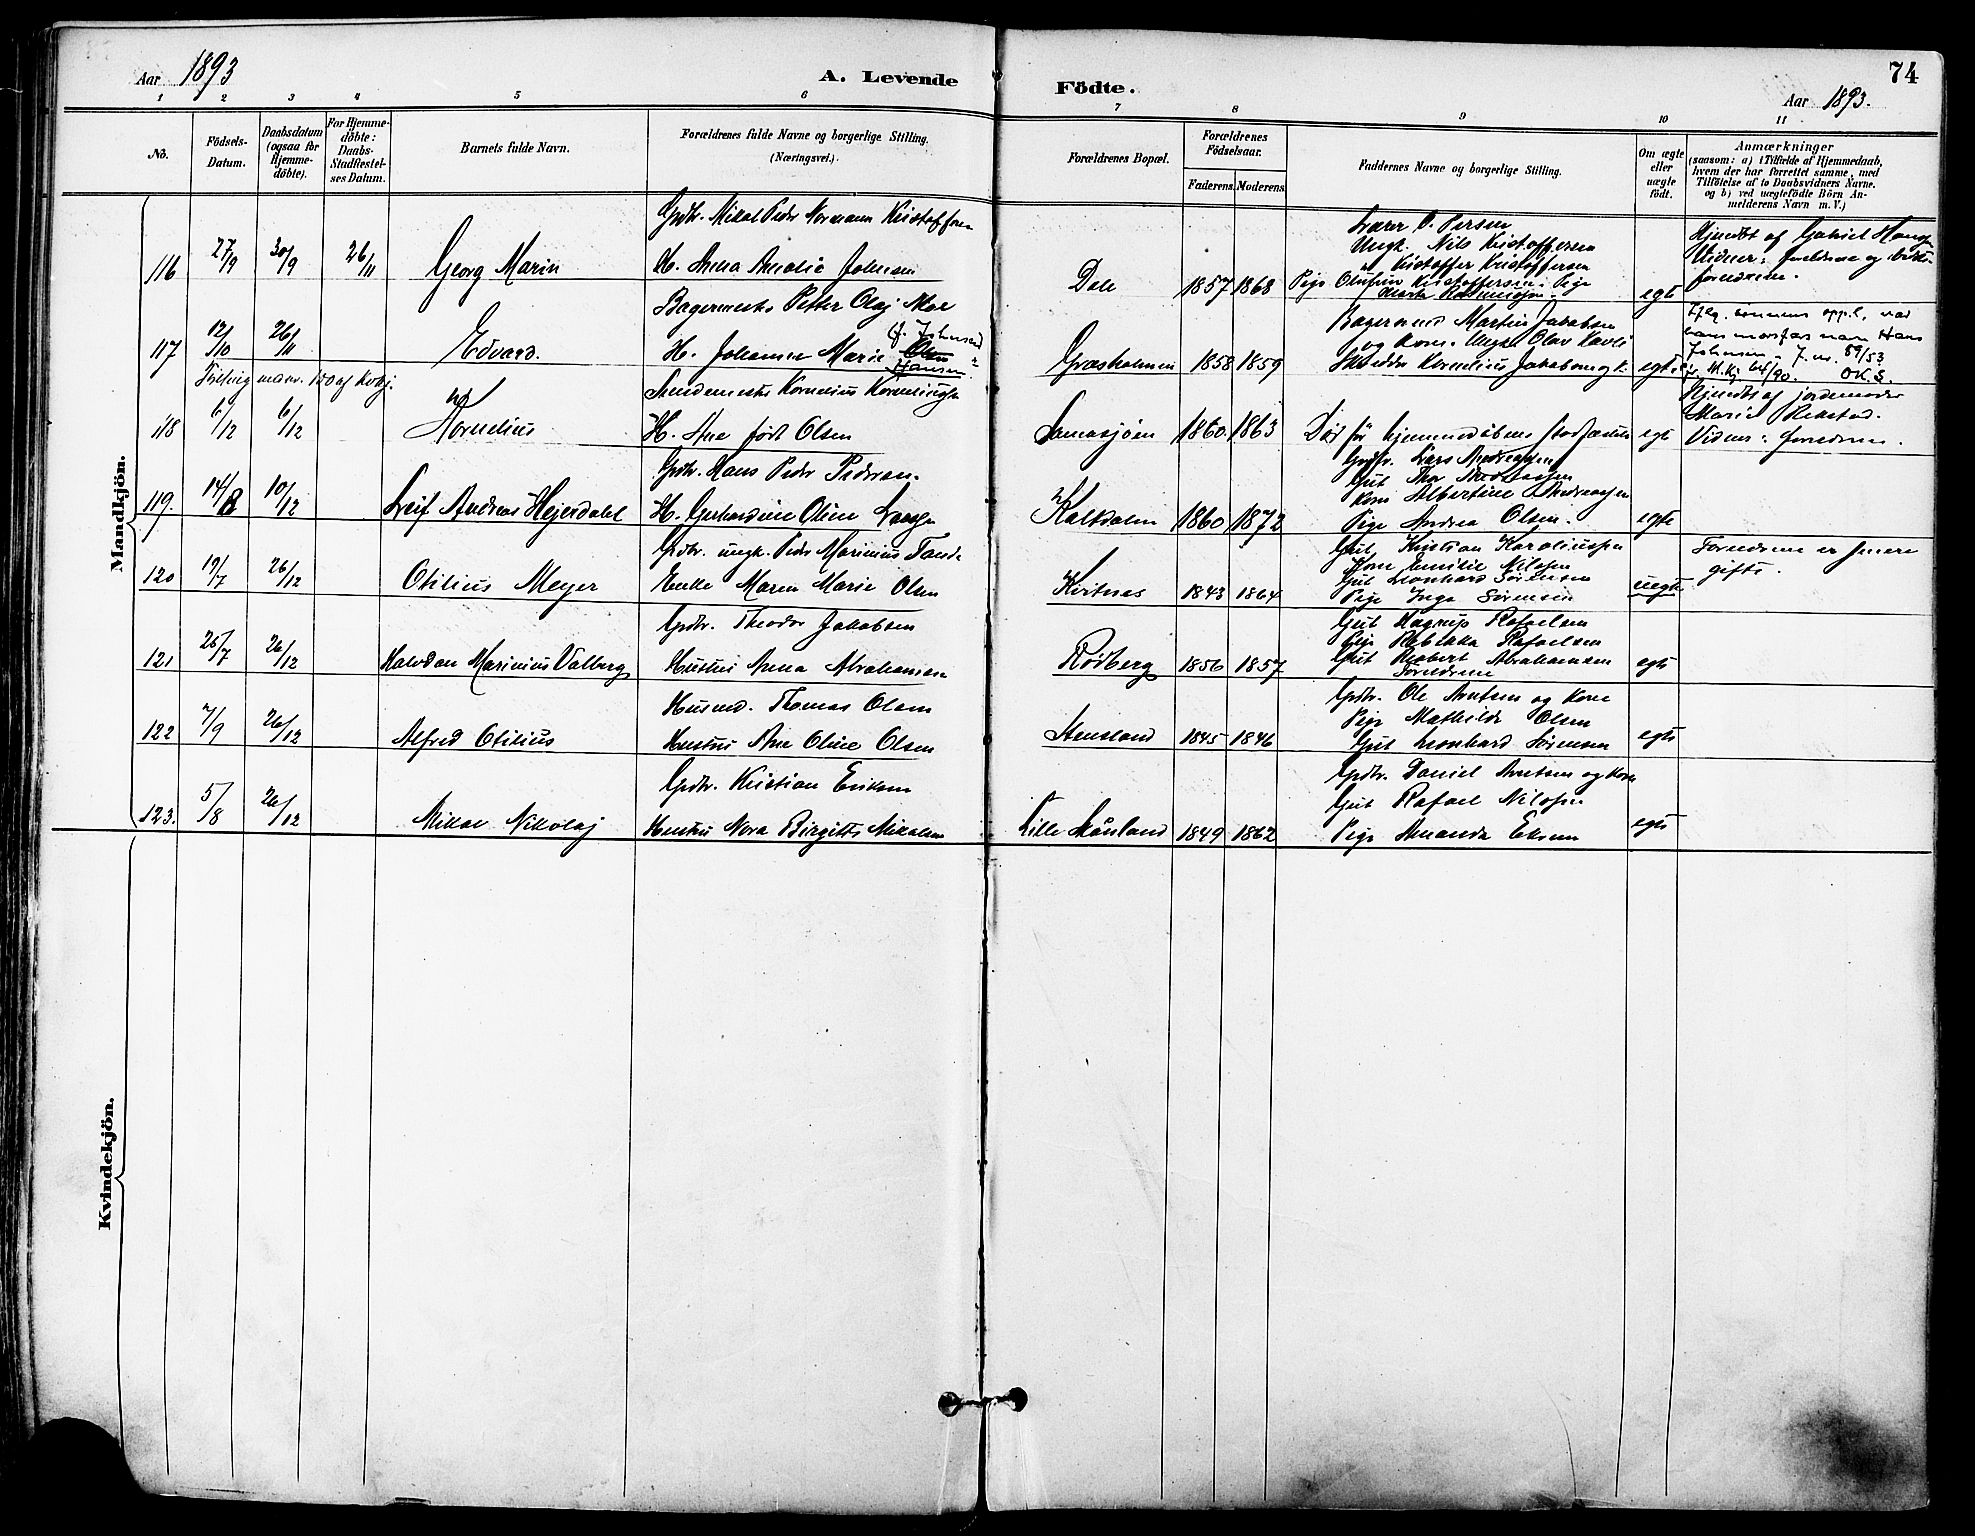 Aar 1893
A. Levende
Födte.
74
Aar 1893.
1 2 3 4 5 6 7 8 9 10 11
No.
Födsels-
Datum.
Daabsdatum
(ogsaa for
Hjemme-
döbte).
For Hjemme-
döbte:
Daabs-
Stadfæstel-
ses Datum.
Barnets fulde Navn.
Forældrenes fulde Navne og borgerlige Stilling.
(Næringsvei.)
Forældrenes Bopæl.
Forældrenes
Födselsaar.
Faderens. Moderens.
Faddernes Navne og borgerlige Stilling.
Om ægte
eller
uægte
födt.
Anmærkninger
(saasom: a) i Tilfælde af Hjemmedaab,
hvem der har forrettet samme, med
Tilföielse af to Daabsvidners Navne.
og b) ved uægtefödte Börn An-
melderens Navn m. V.)
Mandkjön.
116 27/9 30/9 26/11 Georg Marin
Gpdbr. Mikal Peder Normann Kristoffersen
H. Anna Amalie Johnsen
Dale 1857 1868
Lærer O. Persen
Ungk. Nils Kristoffersen
Kristoffer Kristoffersen
Pige Kristoffersen. Pige
egte
Hjmdbt af Gabriel
Vidner: foreldrene og
foreldrene.
117 12/10 26/11 Edvard.
Bagermester Petter Olaj Moe
H. Johanna Marie Olsen
f. Johnsen
Hansen
Græsholmen 1858 1859
Bagersvend Martin Jakobsen
og Kone. Ungk. Olav
Skrædder Kornelius Jakobsen
egte
hans morsfar navn Hans
Johnsen. J. nr. 89/53
O.K.S.
118 6/12 6/12 Kornelius
Kornelius Korneliussen
H. Ane født Olsen
Samasjøen 1860 1863
Død før hjemmedåbens stadfæstelse
egte
Hjmdbt af jordemoder
Marie Rekstad.
Vidner: foreldrene.
119. 14/8 10/12 Leif Andreas Hejerdahl
Gpdbr. Hans Peder Pedersen.
H. Gerhardine Oline
Kalkholm 1860 1872
Gpdbr. Lars Andreassen
Gut Thor Andreassen
Kone Albertine Andreassen
Pige Andrea Olsen.
egte
120 19/7 26/12 Otilius Meyer
Gpdbr. ungk. Peder Marinius
Enke Maren Marie Olsen
Kvitnes 1843 1864
Gut Kristian Karoliussen
Kone Emilie Nilssen
Gut Leonhard Sørensen
Pige Inga Sørensen
uegte
Foreldrene er senere
gifte.
121 26/7 26/12 Halvdan Marinius Valberg
Gpdbr. Theodor Jakobsen
Hustru Anna Abrahamsen
Rødberg 1856 1857
Gut Hagrup Rafaelsen
Pige Rebekka Rafaelsen
Gut Robert Abrahamsen
Foreldrene
egte
122 7/9 26/12 Alfred Otilius
Husmd. Thomas Olsen
Hustru Ane Oline Olsen
Stensland 1845 1846
Gpdbr. Ole Arntsen og Kone
Pige Mathilde Olsen
Gut Leonhard Sørensen
egte
123. 5/8 26/12 Mikal Nikolaj
Gpdbr. Kristian Eriksen
Hustru Nora Birgitte Mikalsen
Lille Skånland 1849 1862
Gpdbr. Daniel Arntsen og Kone
Gut Rafael Nilssen
Pige Amanda
egte
Kvindekjön.